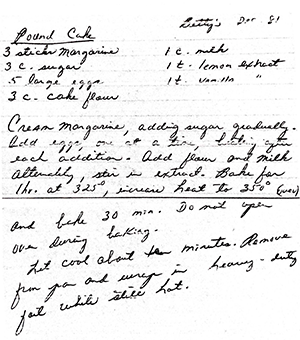 Pound Cake Betty's Dec 81
3 sticks margarine 1 c. milk
3 c. sugar 1 t. lemon extract
5 large eggs 1 t. vanilla "
3 c. cake flour
Cream margarine, adding sugar gradually.
Add eggs, one at a time, beating after
each addition. Add flour and milk
alternately, stir in extract. Bake for
1 hr. at 325°, increase heat to 350°
and bake 30 min. Do not open
oven during baking.
Let cool about minutes. Remove
from pan and wrap in heavy-duty
foil while still hot.